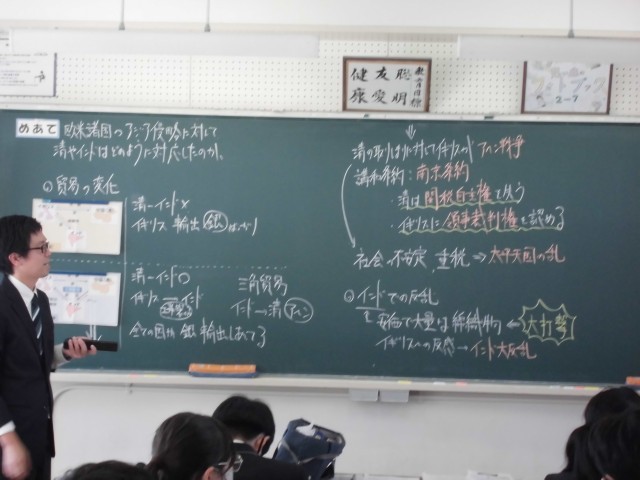 教育目標
聡明
友愛
健康
2-7
めあて 欧米諸国のアジア侵略に対して
清やインドはどのように対応したのか。
①貿易の変化
清ーインド×
イギリス 輸出 銀ばっかり
清ーインド○
イギリス インド
全ての国が銀 輸出しあってる
三角貿易
インド→清 アヘン
⇓
清の取りしまりに対してイギリスが アヘン戦争
講和条約:南京条約
・清は関税自主権を失う
・イギリスに領事裁判権を認める
社会の不安定、重税 ⇒太平天国の乱
②インドでの反乱
安価で大量な綿織物 ← 大打撃
イギリスへの反感→インド大反乱